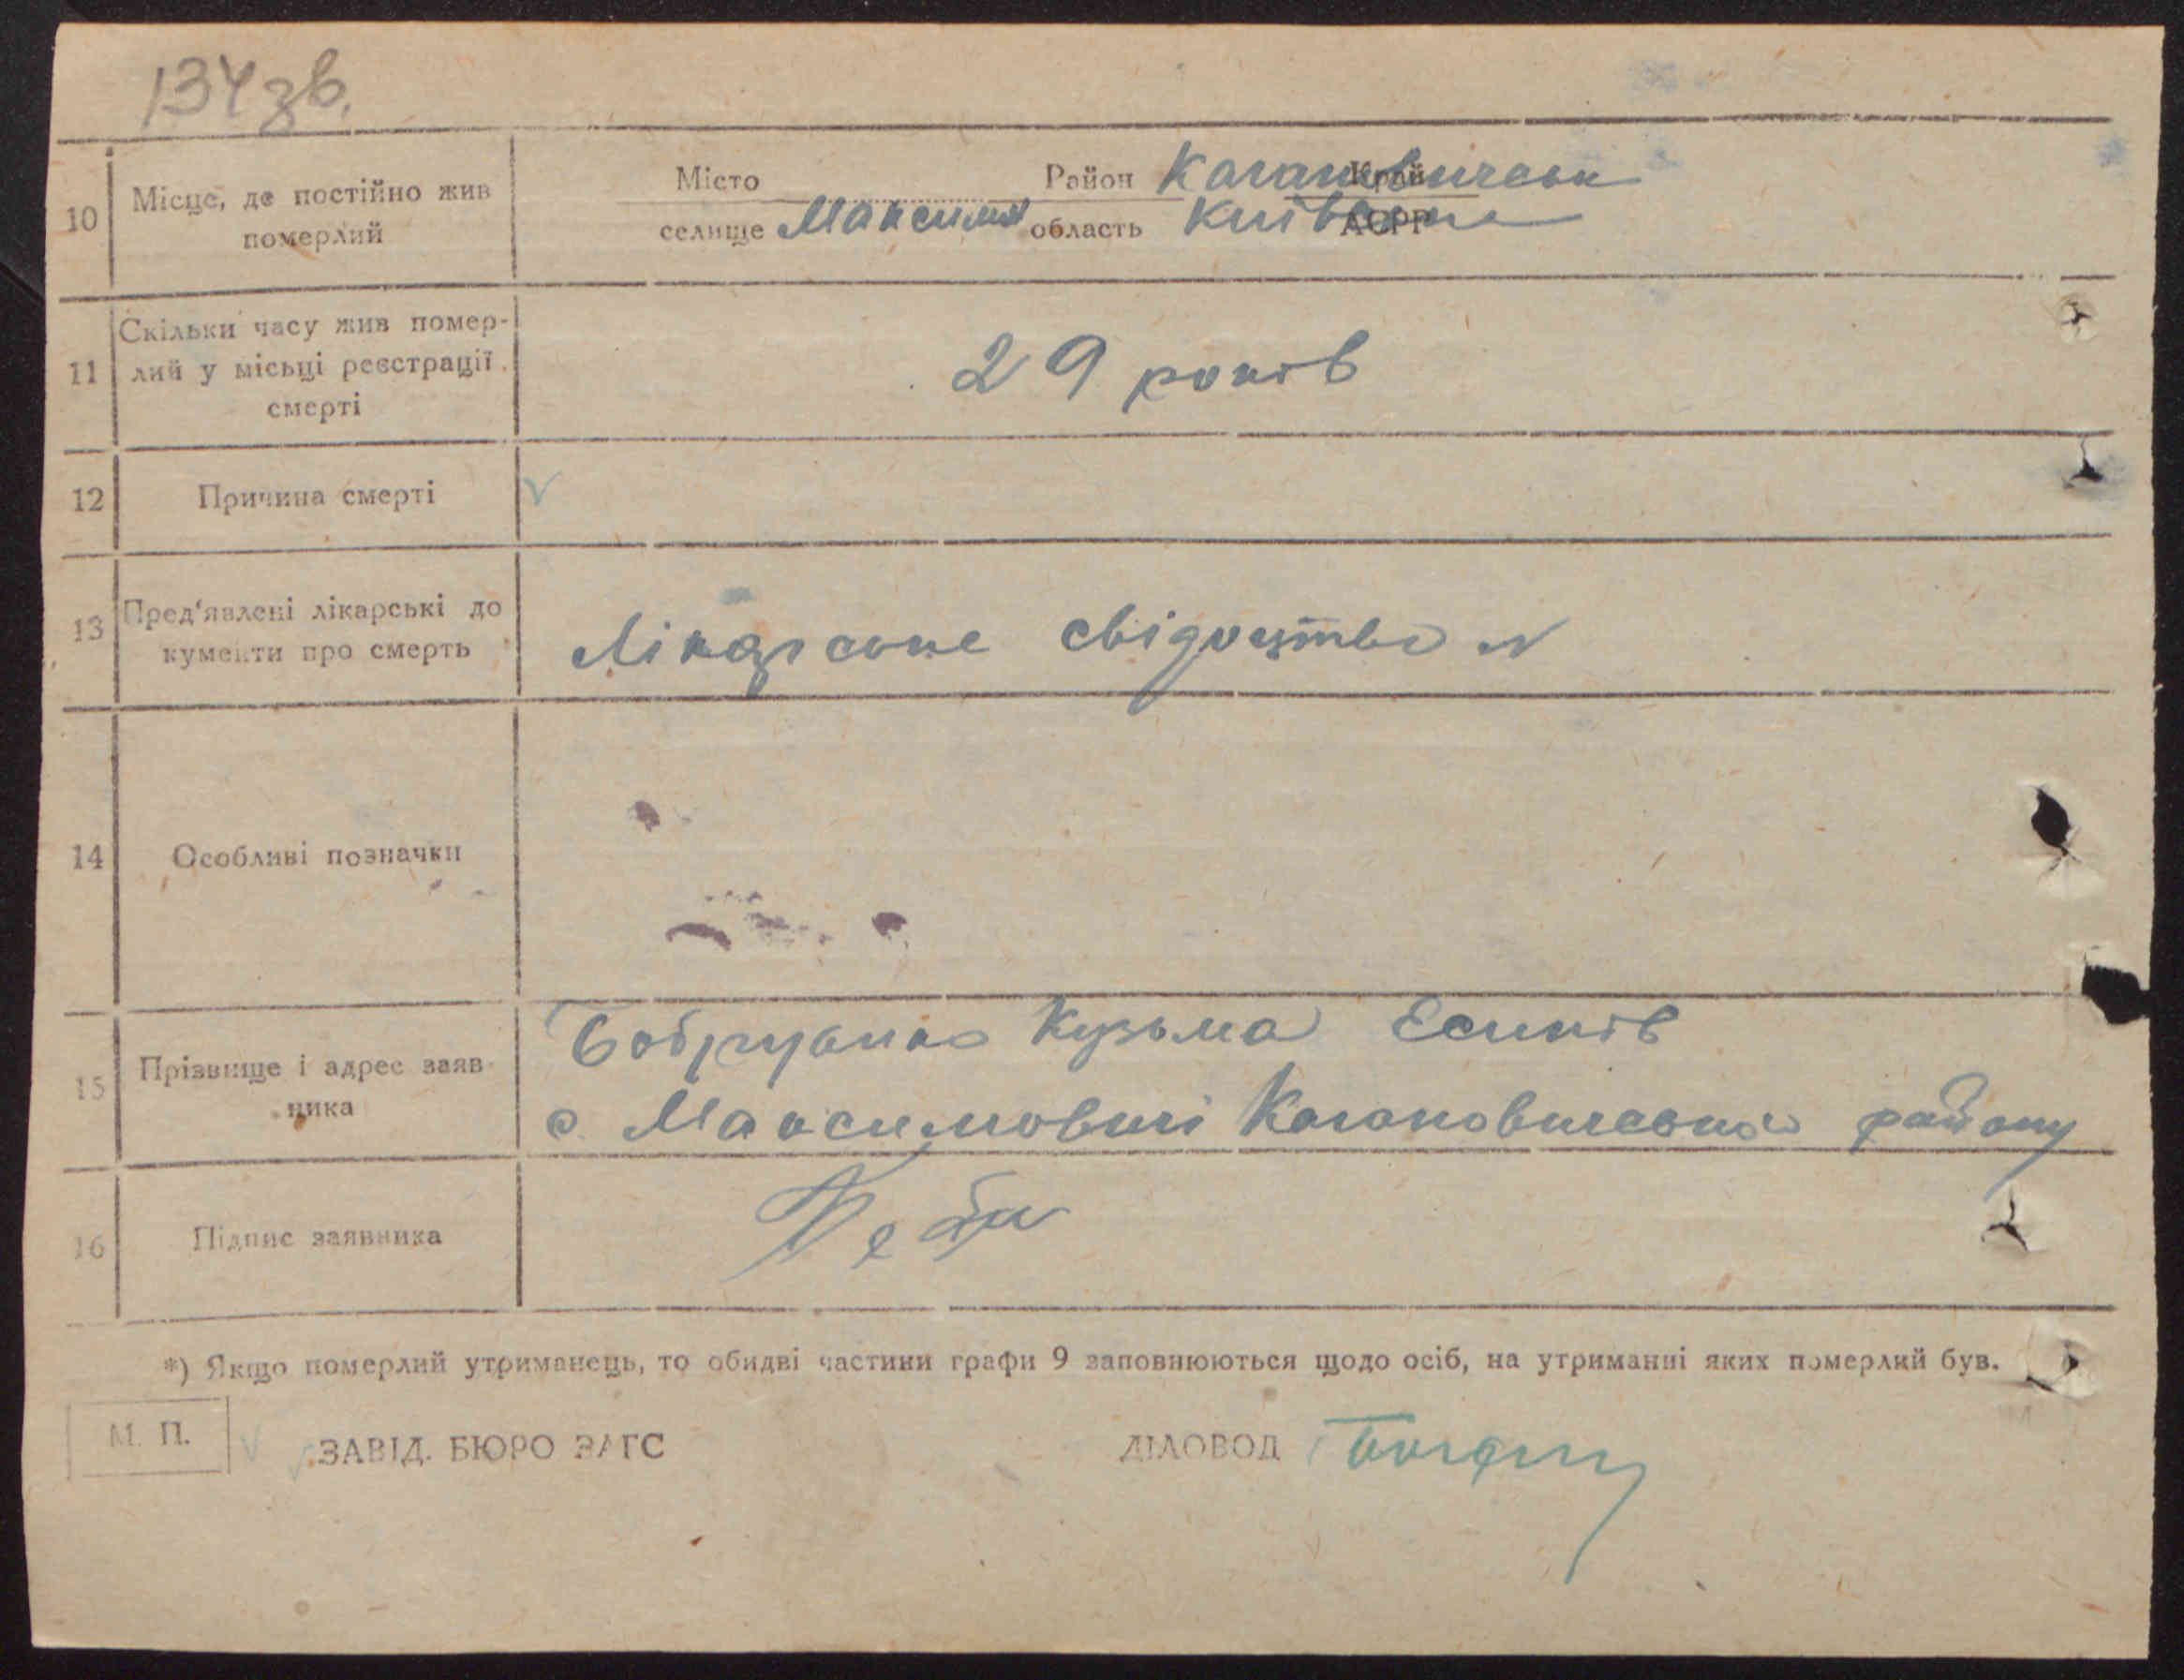 134 зв.
10 Місце, де постійно жив померлий
Місто Район Кагановичськ Край
селище Максимов область Київська АСРР
11 Скільки часу жив помер-
лий у місьці реєстрації
смерті
29 років
12 Причина смерті
13 Пред'явлені лікарські до
кументи про смерть
Лікарське свідоцтво N
14 Особливі позначки
15 Прізвище і адрес заяв-
ника
Кузьма Есипів
с. Максимовичі Кагановичського району
16 Підпис заявника
*) Якщо померлий утриманець, то обидві частини графи 9 заповнюються щодо осіб, на утриманні яких померлий був.
М. П. ЗАВІД. БЮРО ЗАГС ДІЛОВОД